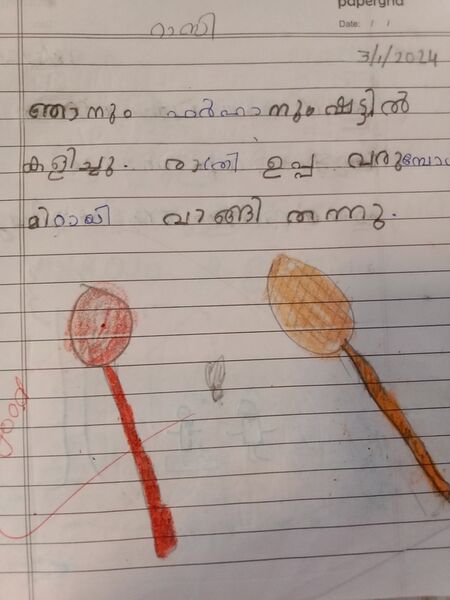 papergrid
Date: / /
റാസി
3/1/2024
ഞാനും ഫർഹാനും ഷട്ടിൽ
കളിച്ചു. രാത്രി ഉപ്പ വരുമ്പോ
മിഠായി വാങ്ങി തന്നു.
Good